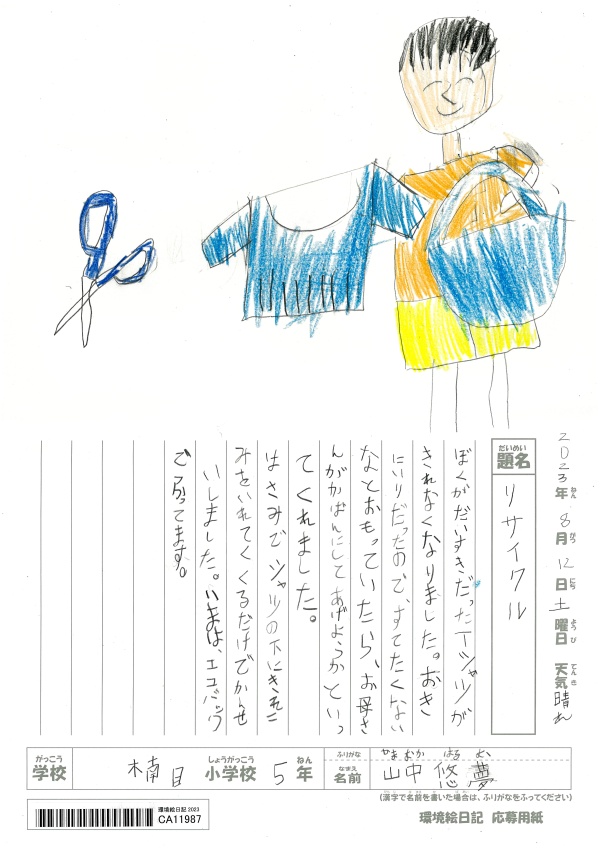 2023年ねん 8月がつ 12日にち 土曜日ようび 天気てんき 晴れ
だいめい
題名
リサイクル
ぼくがだいすきだったTシャツが
きれなくなりました。おき
にいりだったので、すてたくない
なとおもっていたら、お母さ
んがかばんにしてあげようかといっ
てくれました。
はさみでシャツの下にきれこ
みをいれてくくるだけでかんせ
いしました。いまは、エコバック
で使ってます。
がっこう
学校
楠目
しょうがっこう
小学校
5
ねん
年
ふりがな
なまえ
名前
やまおか はるむ
山中 悠夢
(漢字で名前を書いた場合は、ふりがなをふってください)
環境絵日記 2023
CA11987
環境絵日記 応募用紙